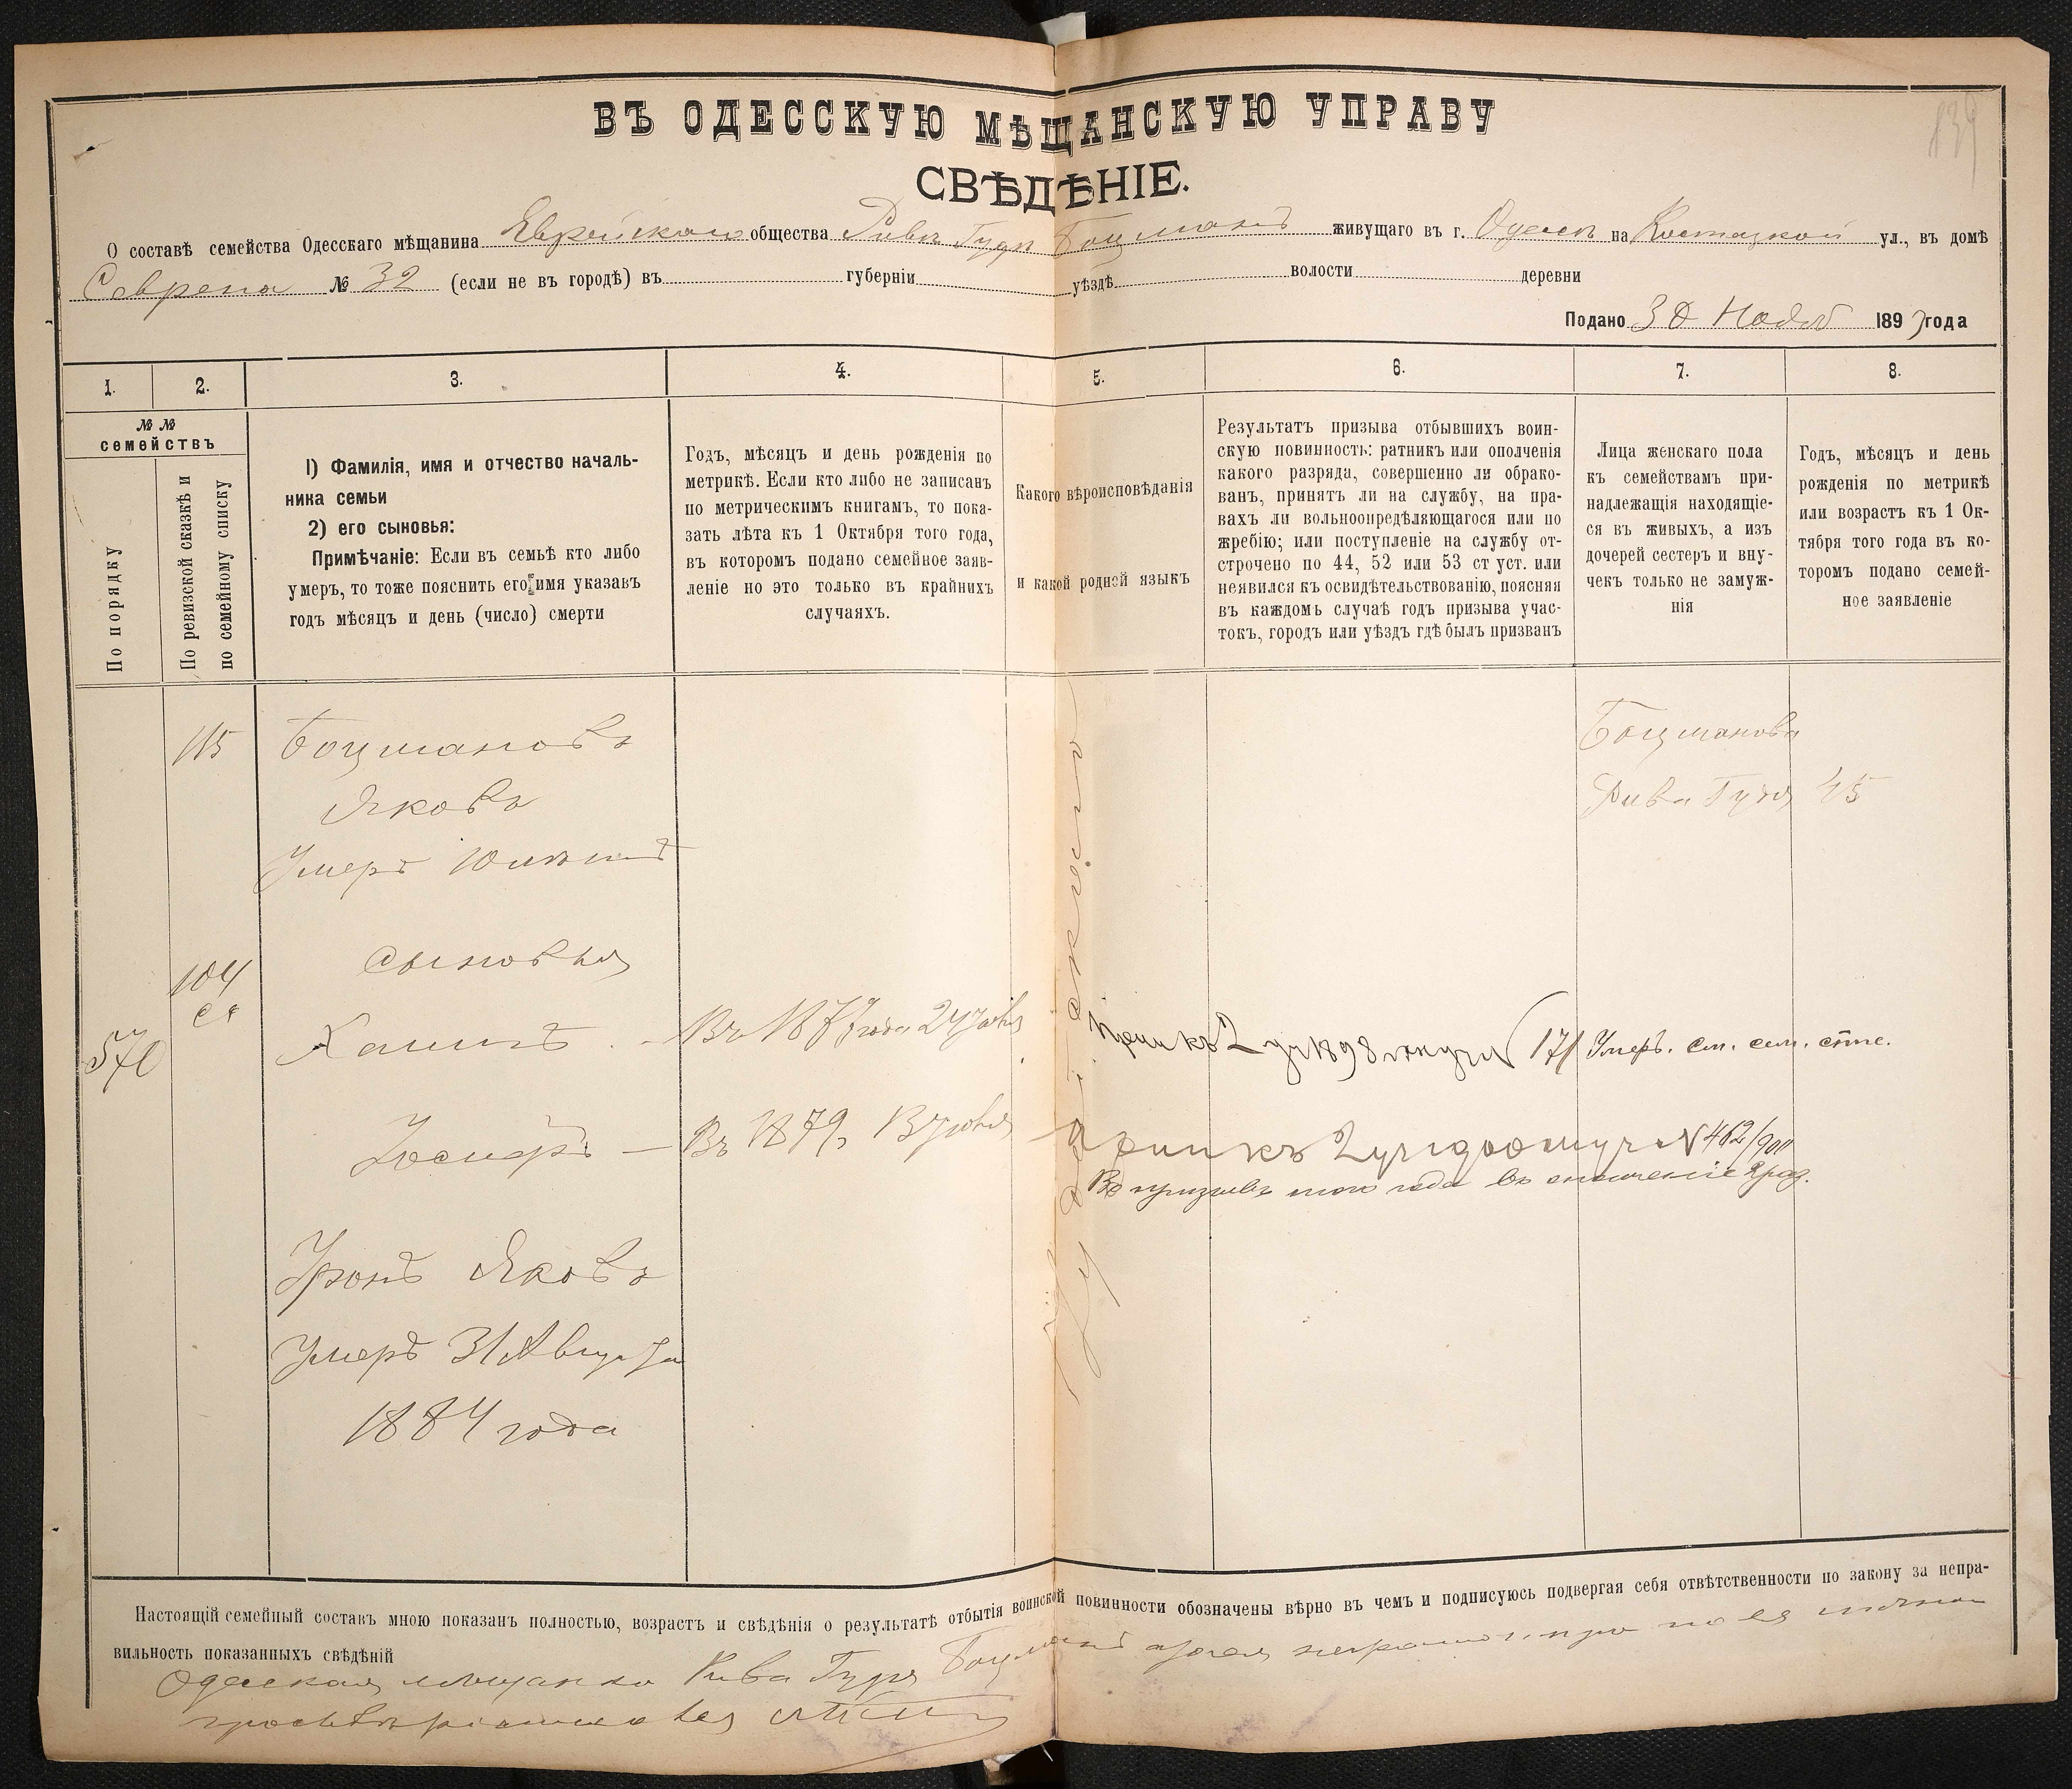 139
ВЪ ОДЕССКУЮ МѢЩАНСКУЮ УПРАВУ
СВѢДѢНІЕ.
О составѣ семейства Одесскаго мѣщанина Еврейскаго общества Рива Гудя Боцманъ живущаго въ г. Одессѣ на Костецкой ул., въ домѣ
№ 32 (если не въ городѣ) въ губерніи уѣздѣ волости деревни
Подано 30 Нояб 1897 года
1. 2. 3. 4. 5. 6. 7. 8.
№ №
семействъ
По порядку
По ревизской сказкѣ и
по семейному списку
1) Фамилія, имя и отчество началь-
ника семьи
2) его сыновья:
Примѣчаніе: Если въ семьѣ кто либо
умеръ, то тоже пояснить его имя указавъ
годъ мѣсяцъ и день (число) смерти
Годъ, мѣсяцъ и день рожденія по
метрикѣ. Если кто либо не записанъ
по метрическимъ книгамъ, то пока-
зать лѣта къ 1 Октября того года,
въ которомъ подано семейное заяв-
леніе но это только въ крайнихъ
случаяхъ.
Какого вѣроисповѣданія
и какой родной языкъ
Результатъ призыва отбывшихъ воин-
скую повинность: ратникъ или ополченія
какого разряда, совершенно ли обрако-
ванъ, принятъ ли на службу, на пра-
вахъ ли вольноопредѣляющагося или по
жребію; или поступленіе на службу от-
строчено по 44, 52 или 53 ст уст. или
неявился къ освидѣтельствованію, поясняя
въ каждомъ случаѣ годъ призыва учас-
токъ, городъ или уѣздъ гдѣ былъ призванъ
Лица женскаго пола
къ семействамъ при-
надлежащія находящіе-
ся въ живыхъ, а изъ
дочерей сестеръ и вну-
чекъ только не замуж-
нія
Годъ, мѣсяцъ и день
рожденія по метрикѣ
или возрастъ къ 1 Ок-
тября того года въ ко-
торомъ подано семей-
ное заявленіе
115 Боцмановъ
Яковъ
Умеръ
Боцманова
Рива Гудя 45
сыновья
104
570
Хаимъ - Въ 1877 года 24
2 уч 1898 171 Умеръ. см. сем. спис.
Іосифъ — Въ 1879
къ 2 уч № 462/900
Въ призывѣ того года въ ополченіе 2 раз.
Іудейскаго
Яковъ
Умеръ 31 Августа
1884 года
Настоящій семейный составъ мною показанъ полностью, возрастъ и свѣдѣнія о результатѣ отбытія воинской повинности обозначены вѣрно въ чемъ и подписуюсь подвергая себя отвѣтственности по закону за непра-
вильность показанныхъ свѣдѣній
Одесская мѣщанка Рива Гудя Боцманъ а за нея неграмотную по ея личной
просьбѣ